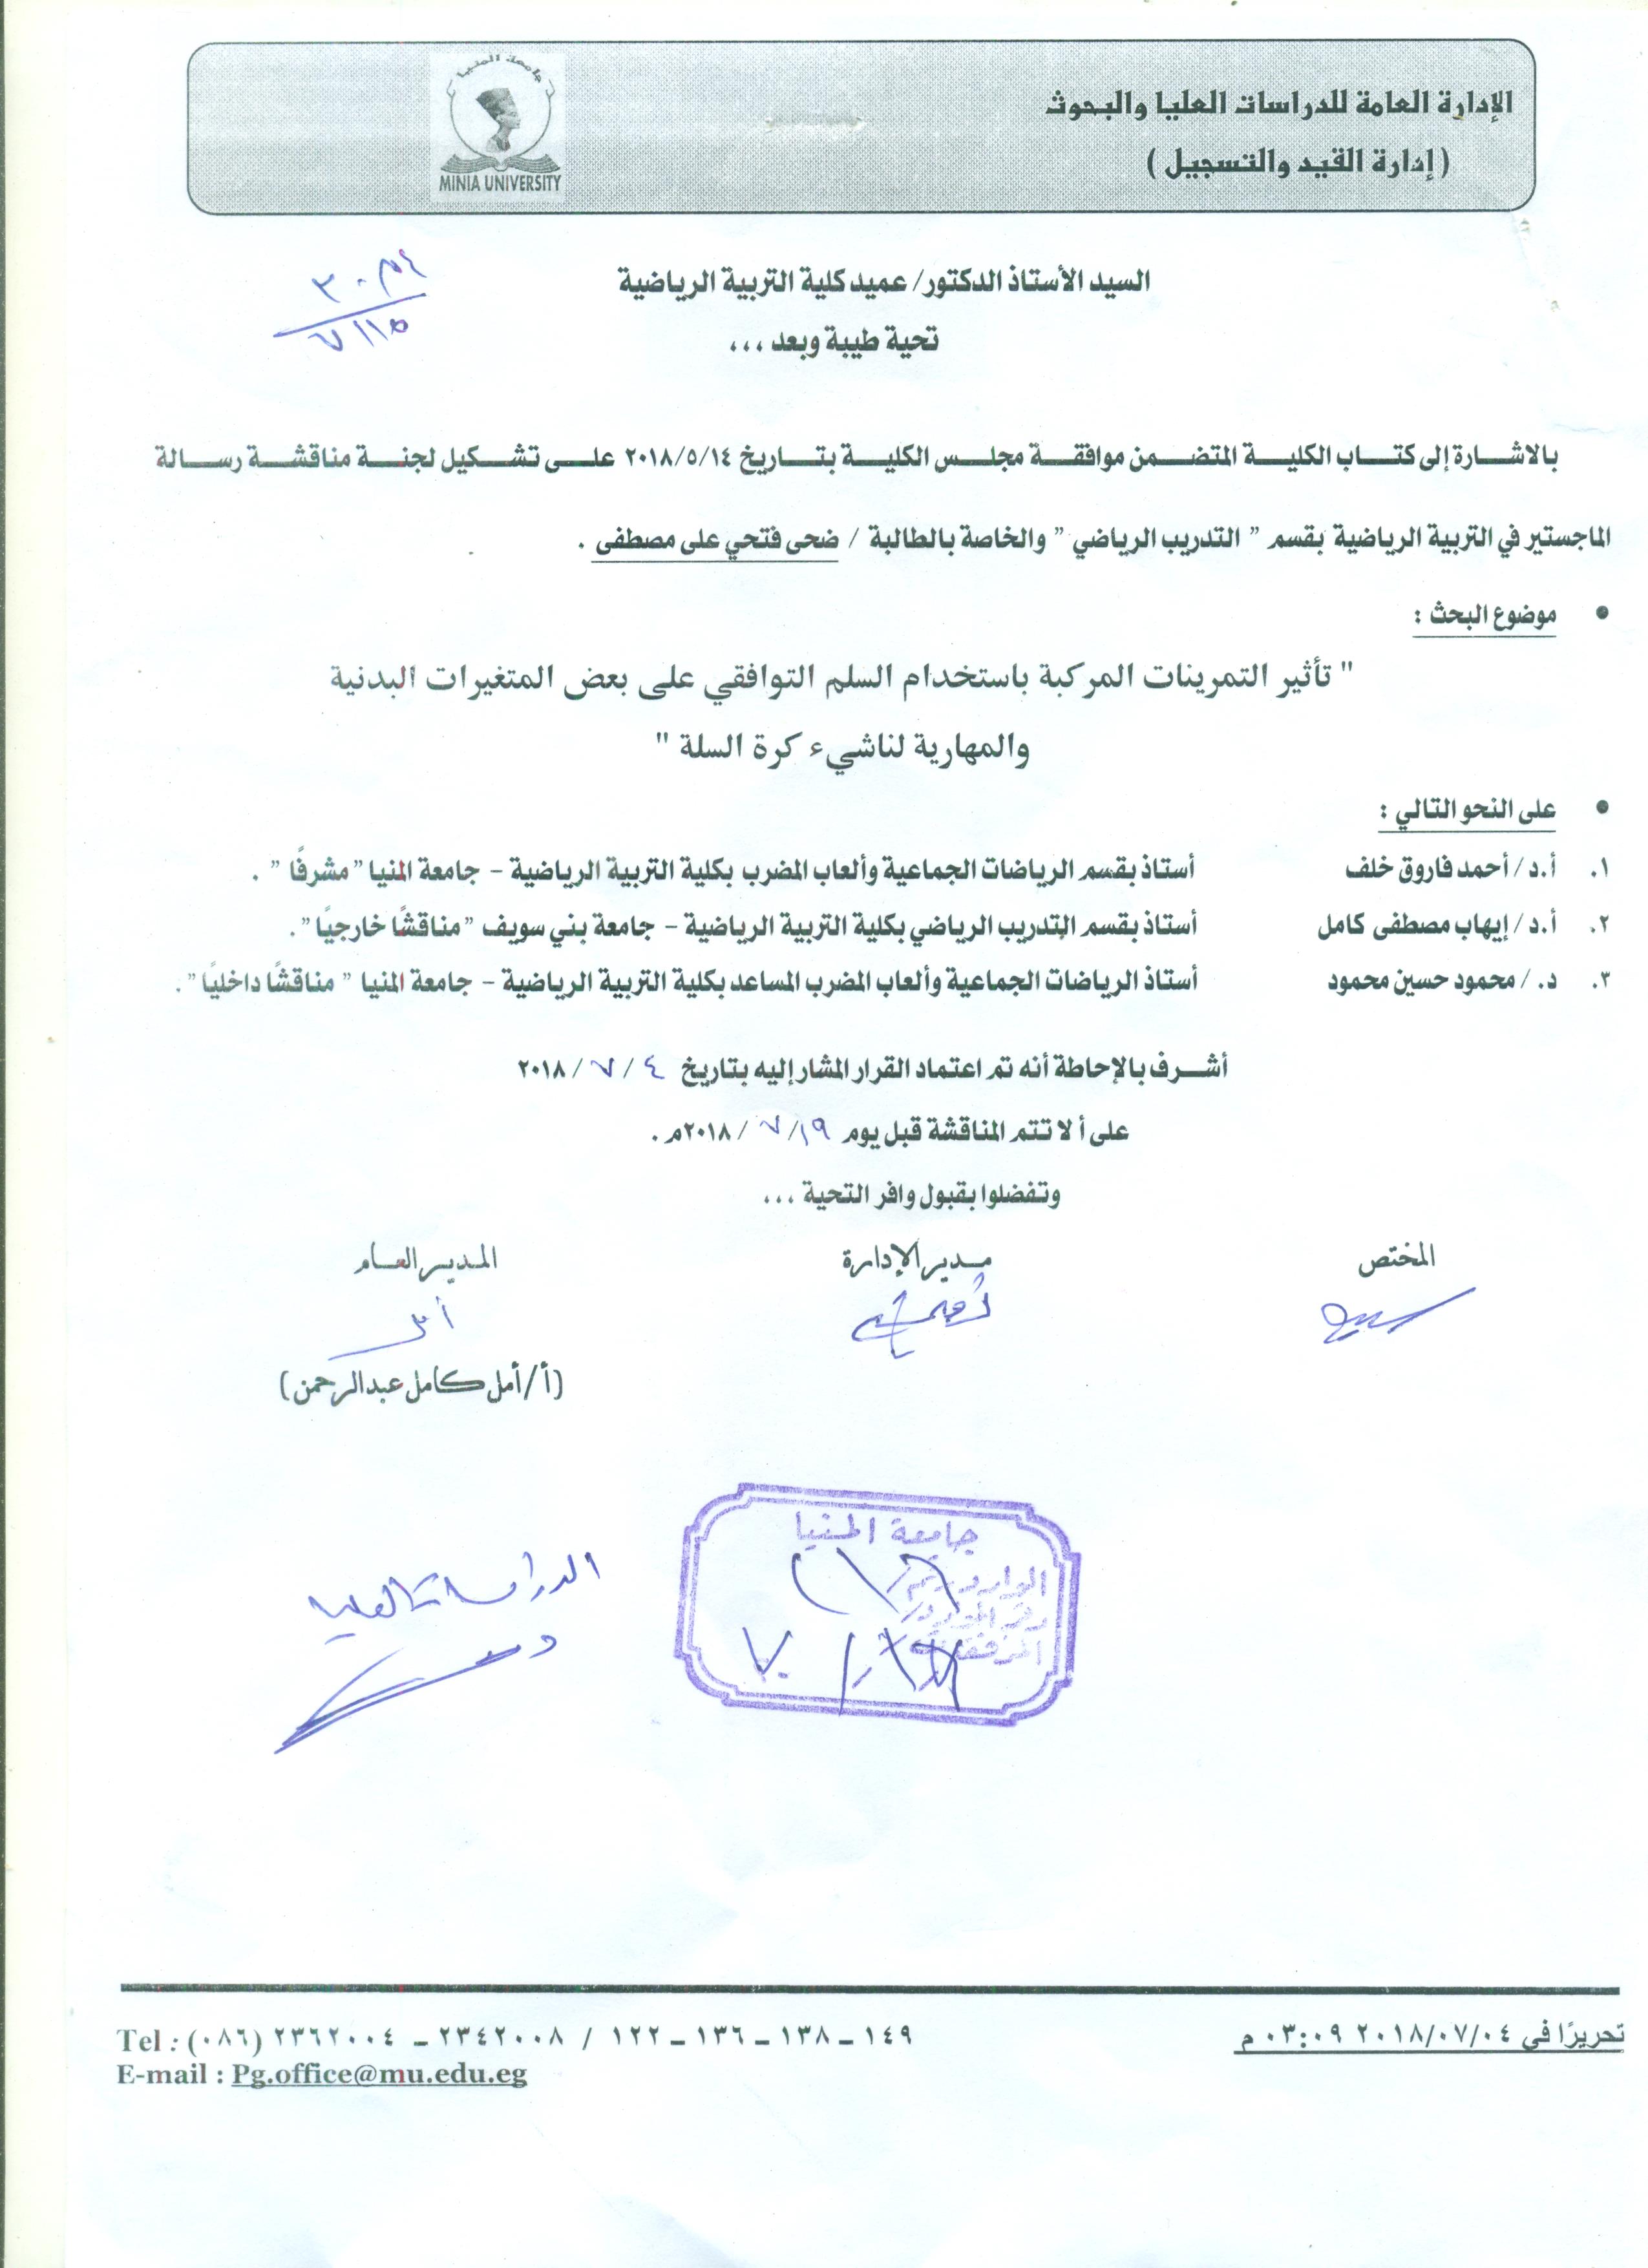 الإدارة العامة للدراسات العليا والبحوث
( إدارة القيد والتسجيل )
جامعة المنيا
MINIA UNIVERSITY
السيد الأستاذ الدكتور/ عميد كلية التربية الرياضية
تحية طيبة وبعد ...
بالاشارة إلى كتاب الكلية المتضمن موافقة مجلس الكلية بتاريخ ٢٠١٨/٥/١٤ على تشكيل لجنة مناقشة رسالة
الماجستير في التربية الرياضية بقسم " التدريب الرياضي " والخاصة بالطالبة / ضحى فتحي على مصطفى .
• موضوع البحث :
" تأثير التمرينات المركبة باستخدام السلم التوافقي على بعض المتغيرات البدنية
والمهارية لناشيء كرة السلة "
• على النحو التالي :
١. أ.د / أحمد فاروق خلف أستاذ بقسم الرياضات الجماعية وألعاب المضرب بكلية التربية الرياضية – جامعة المنيا " مشرفًا " .
٢. أ.د / إيهاب مصطفى كامل أستاذ بقسم التدريب الرياضي بكلية التربية الرياضية – جامعة بني سويف " مناقشًا خارجيًا " .
٣. د. / محمود حسين محمود أستاذ الرياضات الجماعية وألعاب المضرب المساعد بكلية التربية الرياضية – جامعة المنيا " مناقشًا داخليًا " .
أشرف بالإحاطة أنه تم اعتماد القرار المشار إليه بتاريخ ٤ / ٧ / ٢٠١٨
على أ لا تتم المناقشة قبل يوم ١٩ / ٧ / ٢٠١٨م .
وتفضلوا بقبول وافر التحية ...
المختص مدير الإدارة المدير العام
أمل
(أ/ أمل كامل عبدالرحمن)
جامعة المنيا
الدراسات العليا
تحريرًا في ٢٠١٨/٠٧/٠٤ ٠٣:٠٩ م
Tel : (٠٨٦) ٢٣٦٢٠٠٤ – ٢٣٤٢٠٠٨ / ١٢٢ – ١٣٦ – ١٣٨ – ١٤٩
E-mail : Pg.office@mu.edu.eg